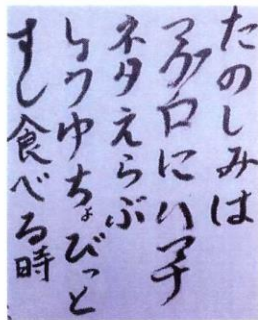 たのしみは
マグロにハマチ
ネタえらぶ
しょうゆちょびっと
すし食べる時